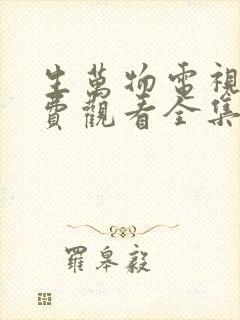 生萬物電視
費觀看全集
羅皋毅